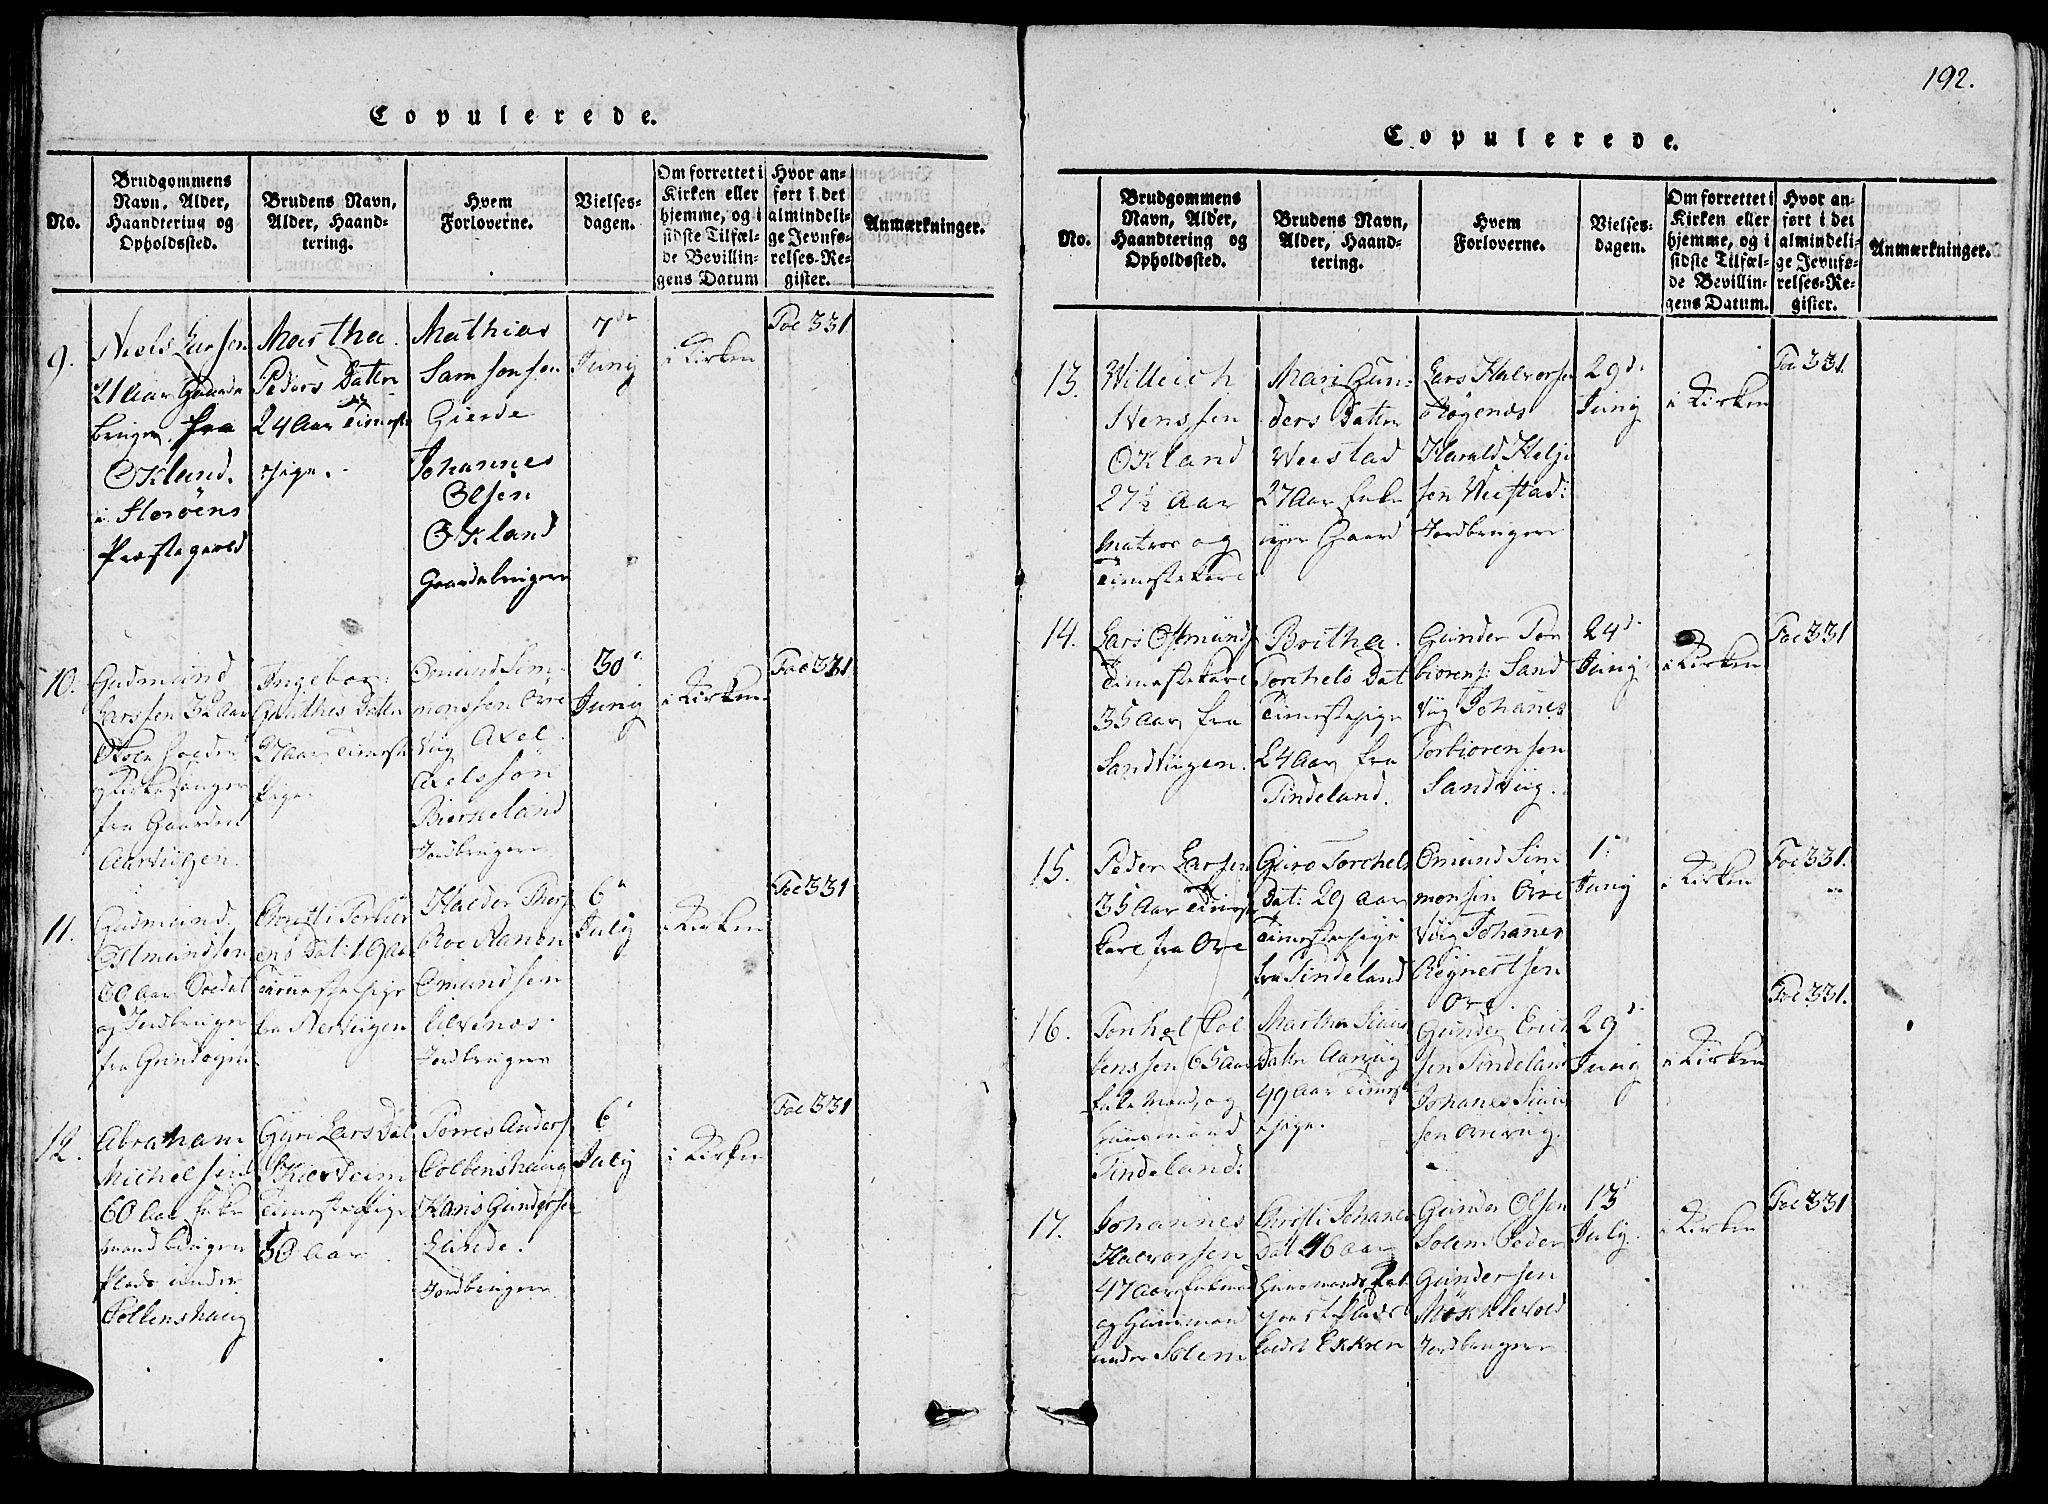 192.
Copulerede.
No.
Brudgommens
Navn, Alder,
Haandtering og
Opholdssted.
Brudens Navn,
Alder, Haand-
tering.
Hvem
Forloverne.
Vielses-
dagen.
Om forrettet i
Kirken eller
hjemme, og i
sidste Tilfæl-
de Bevillin-
gens Datum
Hvor an-
ført i det
almindeli-
ge Jevnfø-
relses-Re-
gister.
Anmærkninger.
9.
Neels Larsen
21 Aar Gaard
bruger, fra
Okland.
i Storöens
Præstegield
Martha
Peders Datter
24 Aar Tieneste
Pige.
Mathias
Samsonsen
Gierde
Johannes
Olsen
Okland
Gaardbrugere
7de
Juny
i Kirken
Foe 331
10.
Gudmund
Larssen 32 Aar
Skole holder
og Kirkesanger
fra Gaarden
Aarviigen.
Ingebor
Datter
27 Aar Tieneste
Pige.
Omund Sim
monssen Ore
viig Axel
Axelssøn
Bierkeland
Jordbrugere
30
Juny
i Kirken
Foe 331
11.
Gudmund
Ostmundsen
60 Aar
og Jordbruger
fra
Christi Torbiør
ens Dat: 19 Aar
Tienestepige
fra
Halder Thors
Roe Hanon
Omundsen
Alvenes.
Jordbrugere
6
July
i Kirken
Foe 331
12.
Abraham
Michelsen
60 Aar Enke
mand
Plads under
Folbenshaug
Gyri Lars Dat
Tieneste Pige
50 Aar
Torres Anders
Colbenshaug
Hans Gunders
Lande.
Jordbrugere
6
July
i Kirken
Foe 331
Copulerede.
No.
Brudgommens
Navn, Alder,
Haandtering og
Opholdssted.
Brudens Navn,
Alder, Haand-
tering.
Hvem
Forloverne.
Vielses-
dagen.
Om forrettet i
Kirken eller
hjemme, og i
sidste Tilfæl-
de Bevillin-
gens Datum.
Hvor an-
ført i det
almindeli-
ge Jevnfø-
relses-Re-
gister.
Anmærkninger.
13.
Willeich
Henssen
Okland
27½ Aar
Matros og
Tienestekarl
Mari Gun-
ders Datter
Veestad
27 Aar Enke
Gaard
Lars Halvorsen
Røgenes
Harald Helje
sen Veistad:
Jordbrugere
29d.
Juny
i Kirken
Foe 331
14.
Lars Ostmunds
Tienestekarl
35 Aar fra
Sandviigen.
Britha
Torchels Dat
Tienestepige
24 Aar fra
Tindeland.
Gunder Tor
biorens: Sand
viig Johanes
Torbiorensen
Sandviig.
24d.
Juny
i Kirken
Foe 331
15.
Peder Larsen
35 Aar Tieneste
Karl fra Ore
Guro Torchels
Dat: 29 Aar
Tienestepige
fra Tindeland
Omund Sim
monsen Ore
viig Johanes
Regnertsen
Ore.
1
Juny
i Kirken
Foe 331.
16.
Torkel Tol
lenssen 65 Aar
Enke Mand, og
Huusmand
Tindeland:
Martha Siurs
Datter Aarviig
49 Aar Tieneste
pige.
Gunder Erics
sen Tindeland
Johanes Siurs
sen Oreviig.
29d.
Juny
i Kirken
Foe 331.
17.
Johannes
Halvorsen
47 Aar Enkemand
og Huusmand
under Solem
Christi Johanes
Dat 46 Aar
Huusmands Dat.
Ekkren
Gunder Olsen
Solem Peder
Gundersen
Møkklevold
Jordbrugere
13
July.
i Kirken
Foe 331